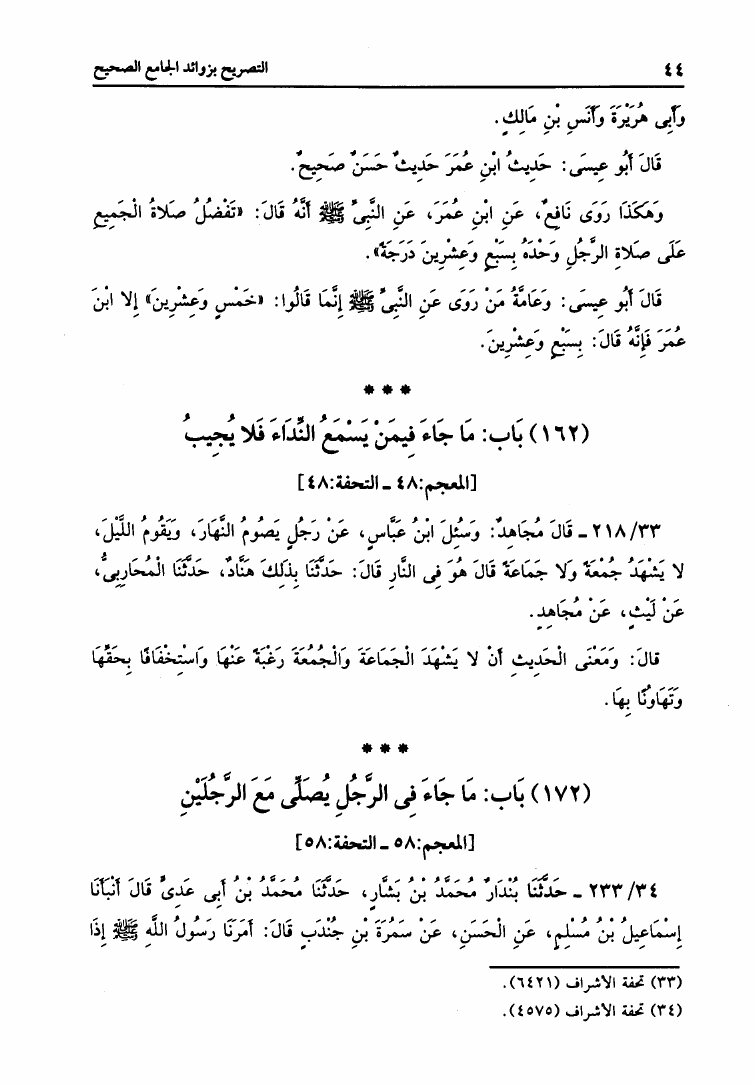 ٤٤
التصريح بزوائد الجامع الصحيح
وَأَبِى هُرَيْرَةَ وَأَنَسِ بْنِ مَالِكٍ.
قَالَ أَبُو عِيسَى: حَدِيثُ ابْنِ عُمَرَ حَدِيثٌ حَسَنٌ صَحِيحٌ.
وَهَكَذَا رَوَى نَافِعٌ، عَنِ ابْنِ عُمَرَ، عَنِ النَّبِىِّ ﷺ أَنَّهُ قَالَ: «تَفْضُلُ صَلاةُ الْجَمِيعِ
عَلَى صَلاةِ الرَّجُلِ وَحْدَهُ بِسَبْعٍ وَعِشْرِينَ دَرَجَةً».
قَالَ أَبُو عِيسَى: وَعَامَّةُ مَنْ رَوَى عَنِ النَّبِىِّ ﷺ إِنَّمَا قَالُوا: «خَمْسٍ وَعِشْرِينَ» إِلا ابْنَ
عُمَرَ فَإِنَّهُ قَالَ: بِسَبْعٍ وَعِشْرِينَ.
* * *
(١٦٢) بَاب: مَا جَاءَ فِيمَنْ يَسْمَعُ النِّدَاءَ فَلا يُجِيبُ
[المعجم:٤٨ ـ التحفة:٤٨]
٢١٨/٣٣ ـ قَالَ مُجَاهِدٌ: وَسُئِلَ ابْنُ عَبَّاسٍ، عَنْ رَجُلٍ يَصُومُ النَّهَارَ، وَيَقُومُ اللَّيْلَ،
لا يَشْهَدُ جُمْعَةً وَلا جَمَاعَةً قَالَ هُوَ فِى النَّارِ قَالَ: حَدَّثَنَا بِذَلِكَ هَنَّادٌ، حَدَّثَنَا الْمُحَارِبِىُّ،
عَنْ لَيْثٍ، عَنْ مُجَاهِدٍ.
قَالَ: وَمَعْنَى الْحَدِيثِ أَنْ لا يَشْهَدَ الْجَمَاعَةَ وَالْجُمُعَةَ رَغْبَةً عَنْهَا وَاسْتِخْفَافًا بِحَقِّهَا
وَتَهَاوُنًا بِهَا.
* * *
(١٧٢) بَاب: مَا جَاءَ فِى الرَّجُلِ يُصَلِّى مَعَ الرَّجُلَيْنِ
[المعجم:٥٨ ـ التحفة:٥٨]
٢٣٣/٣٤ ـ حَدَّثَنَا بُنْدَارٌ مُحَمَّدُ بْنُ بَشَّارٍ، حَدَّثَنَا مُحَمَّدُ بْنُ أَبِى عَدِىٍّ قَالَ أَنْبَأَنَا
إِسْمَاعِيلُ بْنُ مُسْلِمٍ، عَنِ الْحَسَنِ، عَنْ سَمُرَةَ بْنِ جُنْدَبٍ قَالَ: أَمَرَنَا رَسُولُ اللَّهِ ﷺ إِذَا
(٣٣) تحفة الأشراف (٦٤٢١).
(٣٤) تحفة الأشراف (٤٥٧٥).